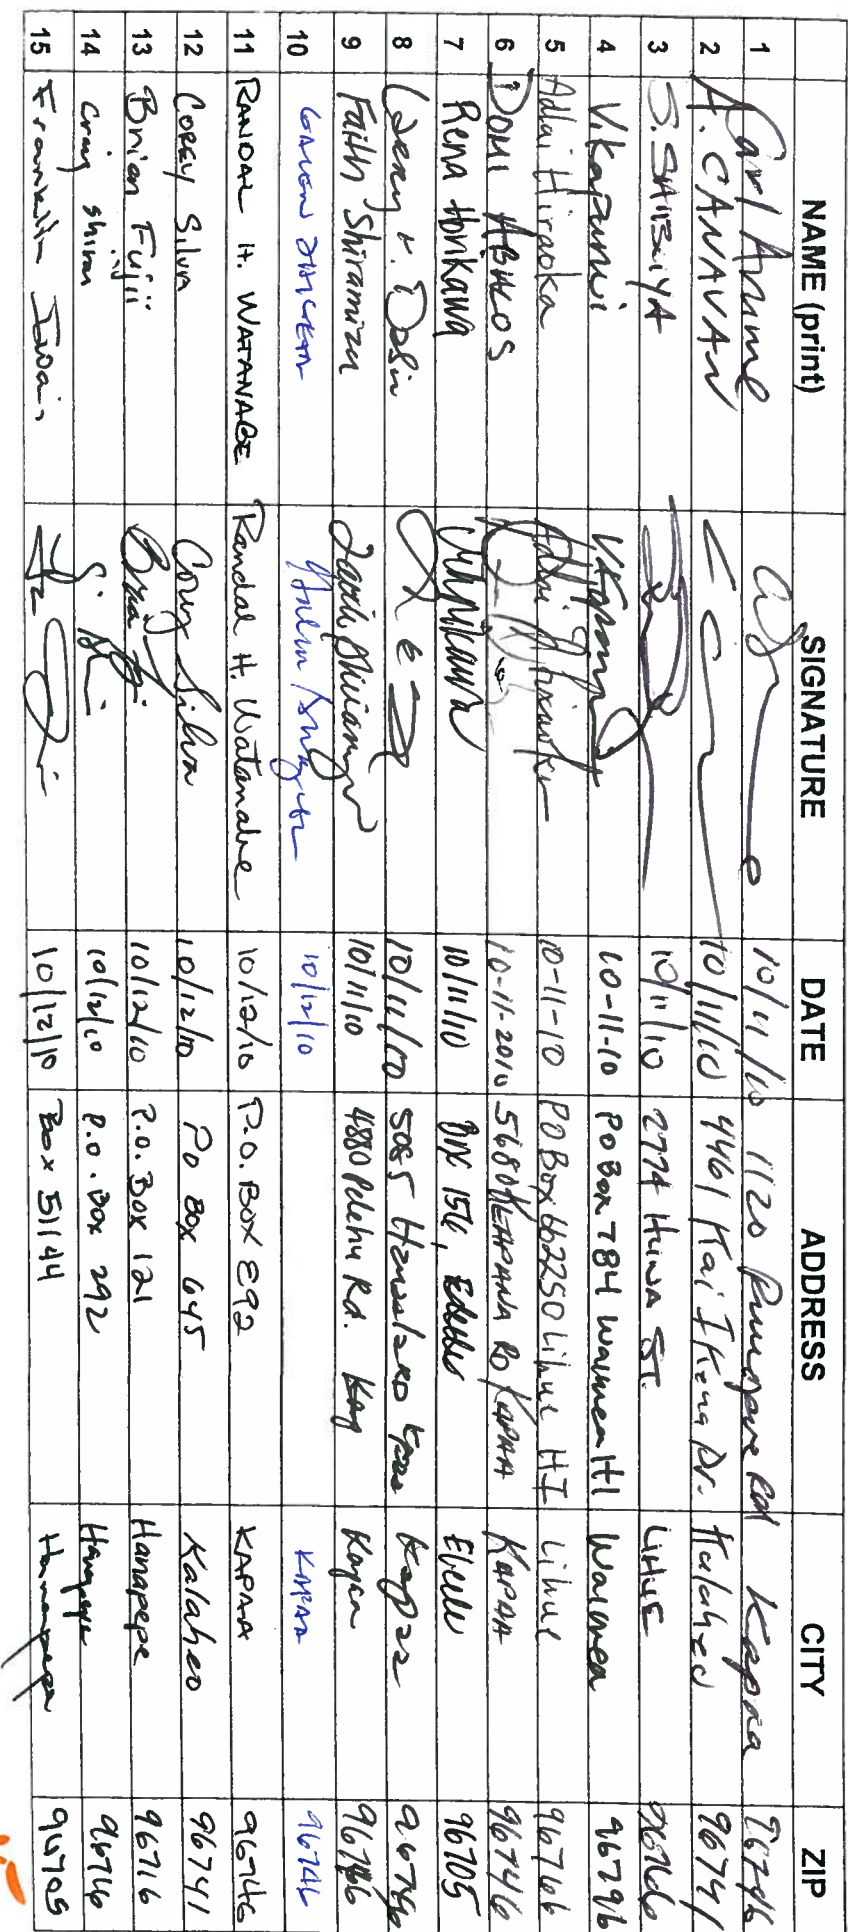 NAME (print) SIGNATURE DATE ADDRESS CITY ZIP
1 Carl Arume 10/11/10 1120 Rd Kapaa 96746
2 A. CANAVAN 10/11/10 4461 Kai Ikena Dr. Kalaheo 96741
3 S. SHIBUYA 10/11/10 2774 HUNA ST. LIHUE 96766
4 V. Kapuni 10-11-10 PO Box 784 Waimea HI Waimea 96796
5 Adlai Hiraoka Adlai Hiraoka 10-11-10 PO Box 662250 Lihue HI Lihue 96766
6 DOMI ABALOS 10-11-2010 5680 KEAPANA RD KAPAA KAPAA 96746
7 Rena Honkawa 10/11/10 BOX 156, Eleele Eleele 96705
8 10/11/10 5085 Kapaa 96746
9 Faith Shiramizu Faith Shiramizu 10/11/10 4880 Rd. Kapaa 96746
10 10/12/10 KAPAA 96746
11 RANDAL H. WATANABE Randal H. Watanabe 10/12/10 P.O. BOX 892 KAPAA 96746
12 COREY SILVA Corey Silva 10/12/10 PO BOX 645 Kalaheo 96741
13 Brian Fujii 10/12/10 P.O. Box 121 Hanapepe 96716
14 Craig 10/12/10 P.O. Box 292 Hanapepe 96716
15 Franklin Iwai 10/12/10 Box 51144 96705